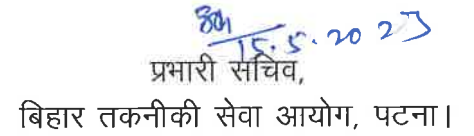 15.5.2023
प्रभारी सचिव,
बिहार तकनीकी सेवा आयोग, पटना।